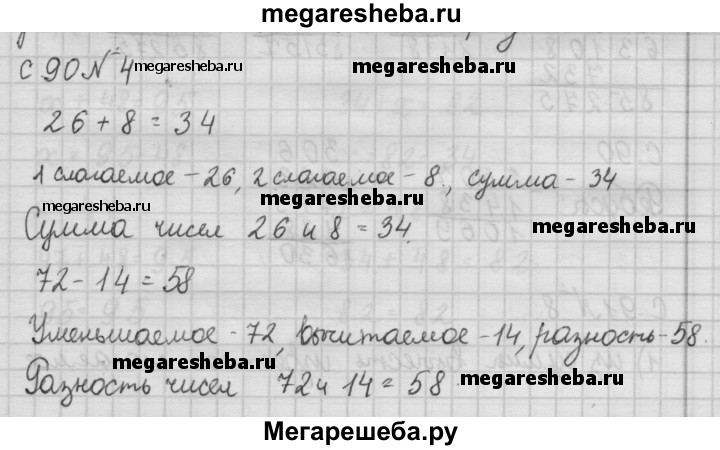 megaresheba.ru
с 90 № 4 megaresheba.ru megaresheba.ru
26 + 8 = 34
1 слагаемое - 26, 2 слагаемое - 8., сумма - 34
megaresheba.ru megaresheba.ru
Сумма чисел 26 и 8 = 34.
72 - 14 = 58
Уменьшаемое - 72, вычитаемое - 14, разность - 58.
megaresheba.ru megaresheba.ru
Разность чисел 72 и 14 = 58
Мегарешеба.ру